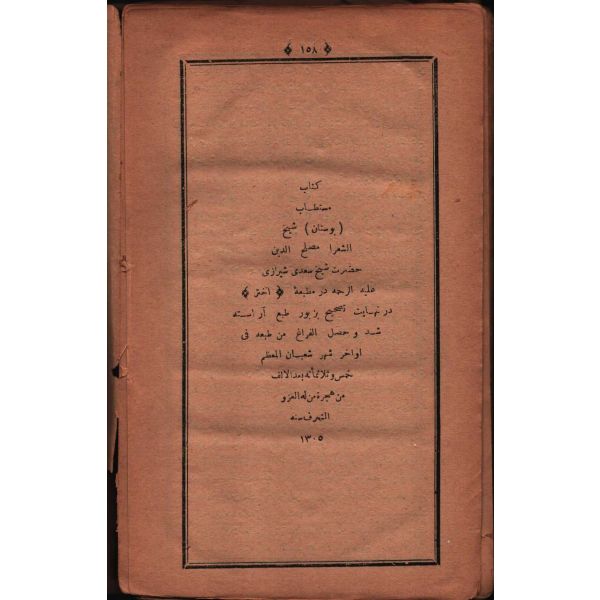 ﴿ ١٥٨ ﴾
كتاب
مستطاب
( بوستان ) شيخ
الشعرا مصلح الدين
حضرت شيخ سعدی شيرازی
عليه الرحمه در مطبعۀ ﴿ اختر ﴾
در نهايت تصحيح بزيور طبع آراسته
شد و حصل الفراغ من طبعه فی
اواخر شهر شعبان المعظم
خمس وثلاثمأئه بعد الالف
من هجرة من له العز و
الشرف سنه
١٣٠٥